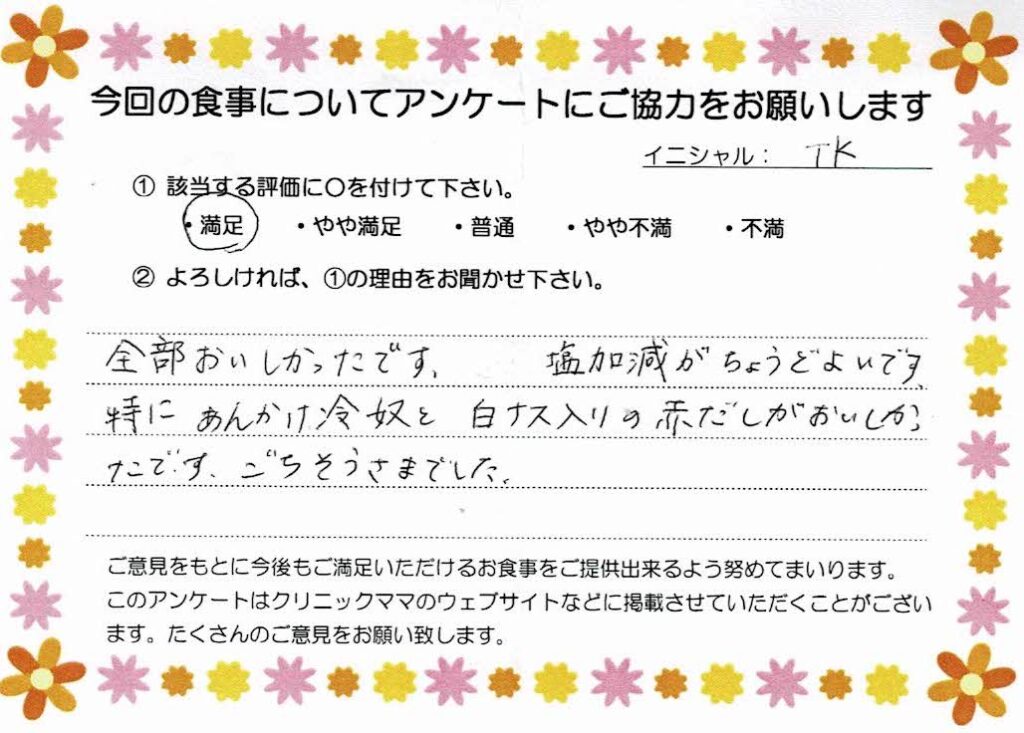 今回の食事についてアンケートにご協力をお願いします
イニシャル： TK
① 該当する評価に〇を付けて下さい。
・満足 ・やや満足 ・普通 ・やや不満 ・不満
② よろしければ、①の理由をお聞かせ下さい。
全部おいしかったです、 塩加減がちょうどよいです、
特に あんかけ冷奴と 白ナス入りの赤だしがおいしかっ
たです、ごちそうさまでした、
ご意見をもとに今後もご満足いただけるお食事をご提供出来るよう努めてまいります。
このアンケートはクリニックママのウェブサイトなどに掲載させていただくことがござい
ます。たくさんのご意見をお願い致します。